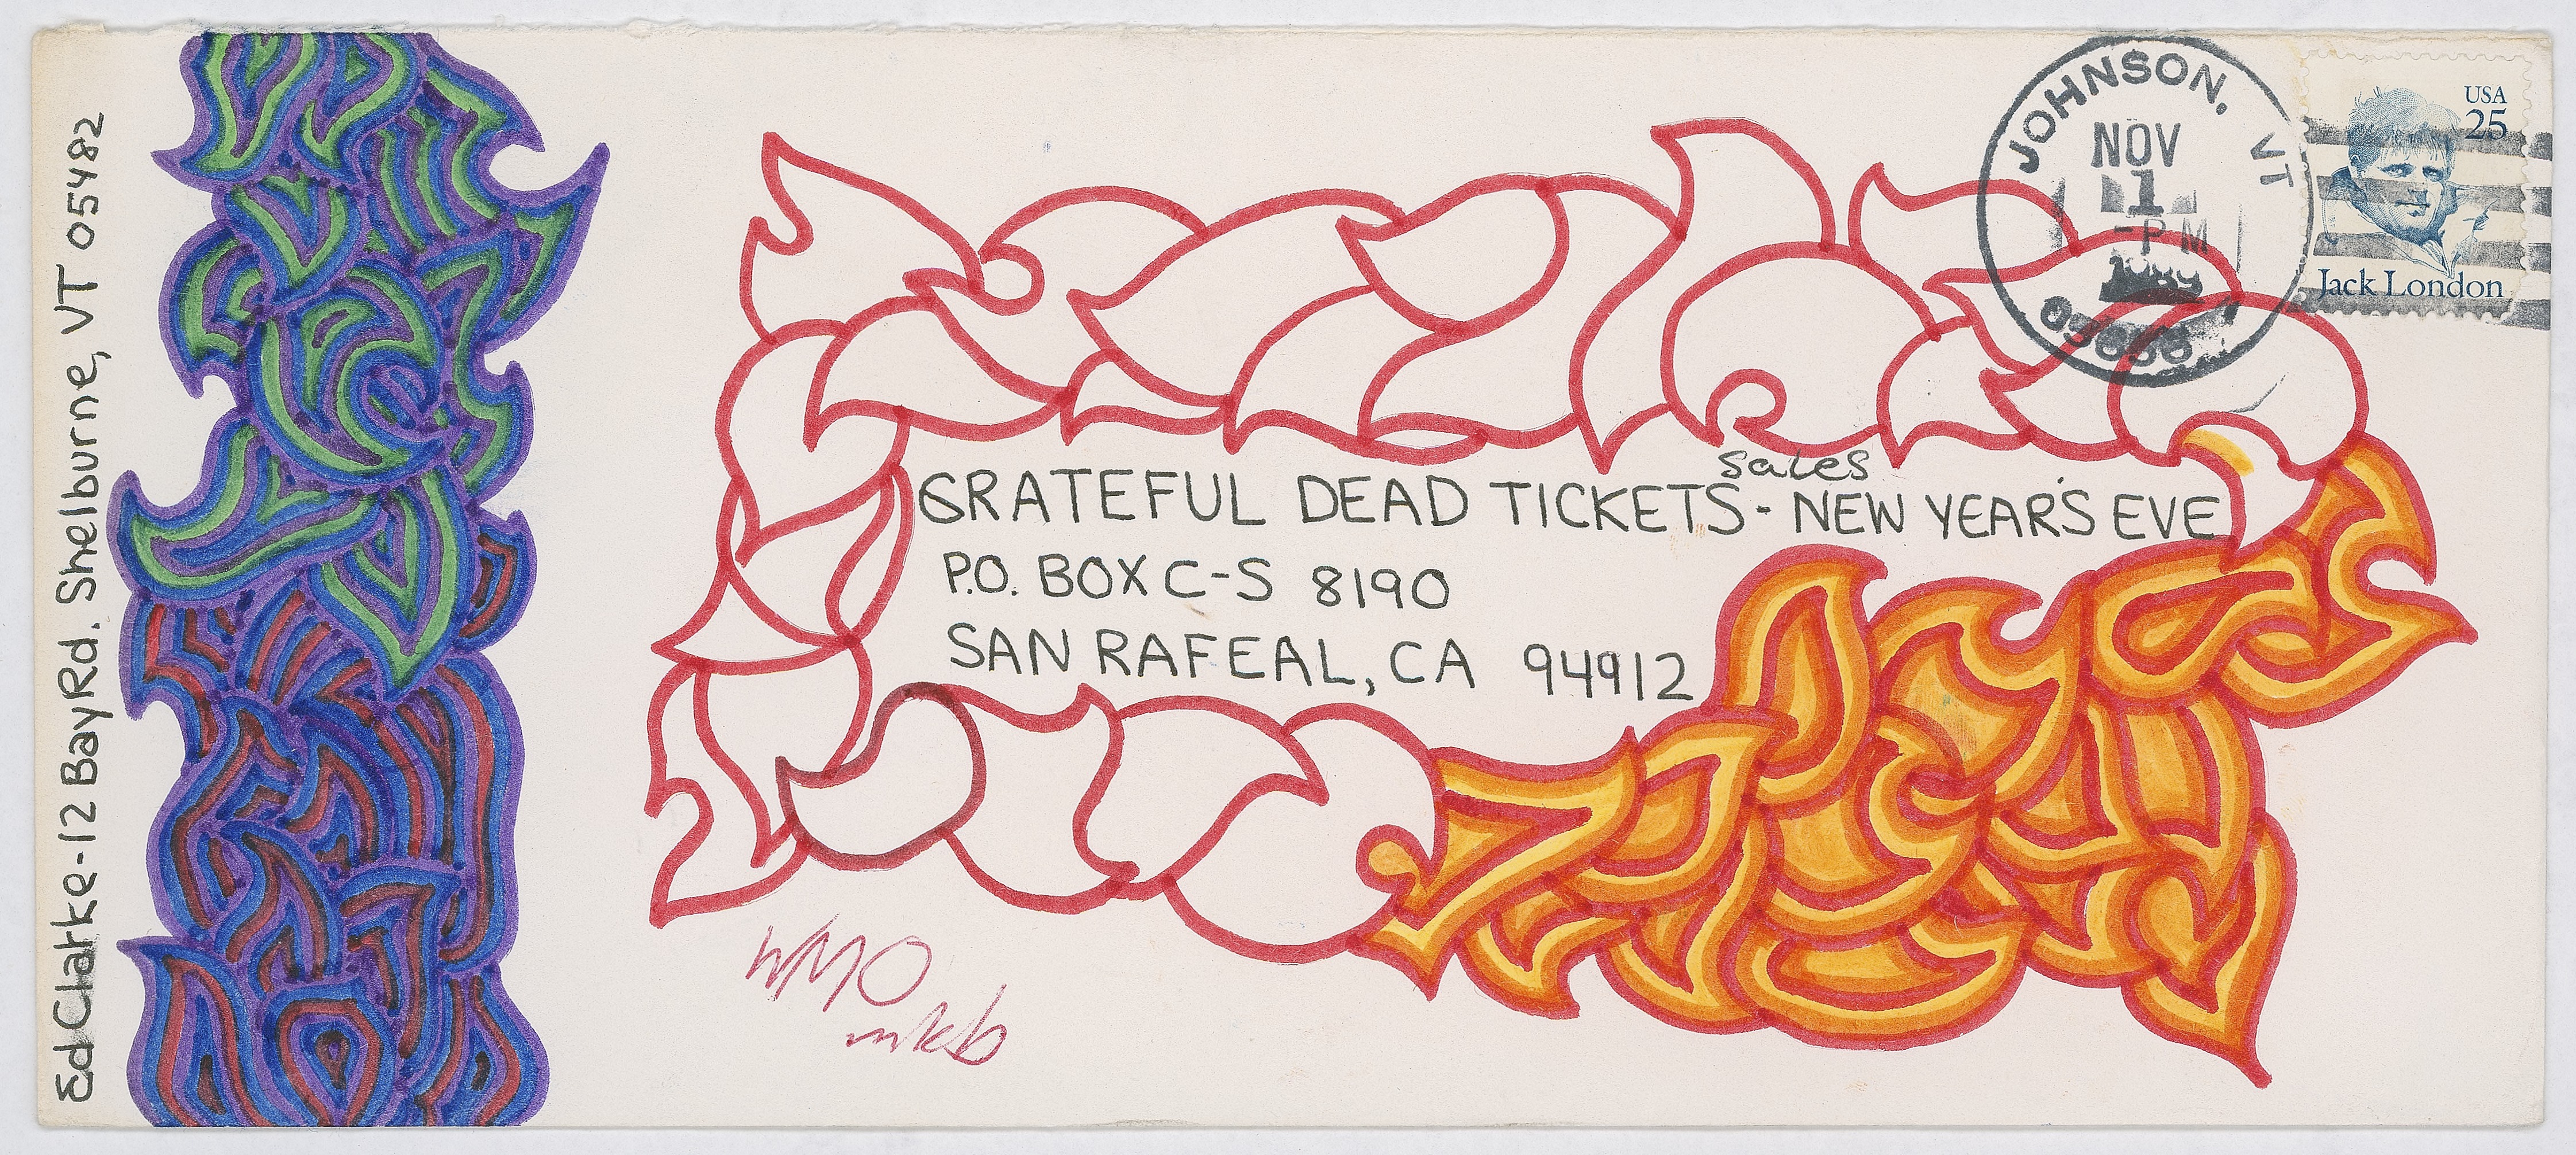 Ed Clarke-12 Bay Rd. Shelburne, VT 05482
JOHNSON, VT
NOV
1
-PM
1989
USA
25
Jack London
sales
GRATEFUL DEAD TICKETS - NEW YEAR'S EVE
P.O. BOX C-S 8190
SAN RAFEAL, CA 94912
WMO